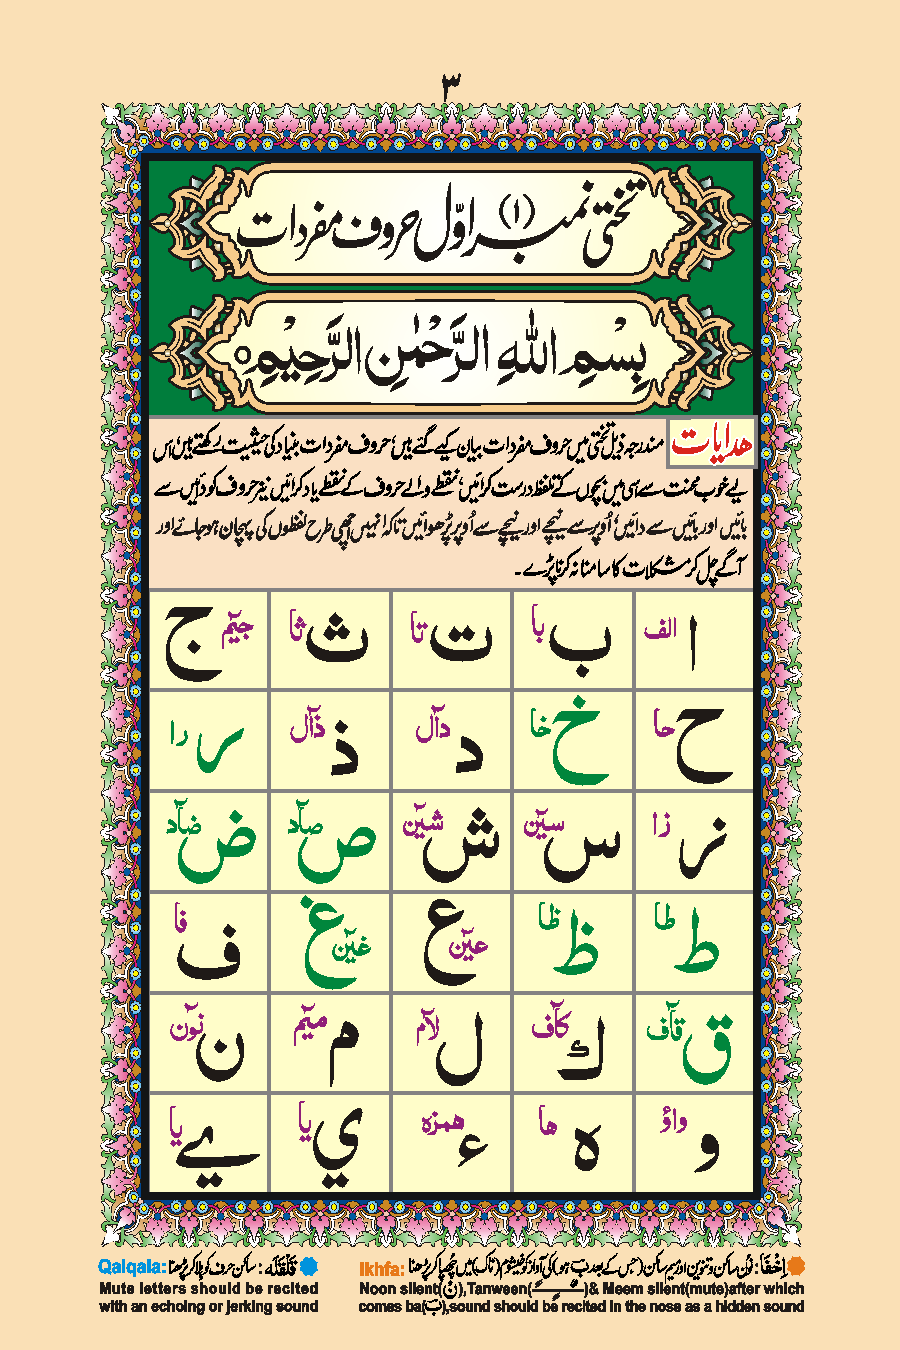 ٣
تختی نمبر (۱) اوّل حروف مفردات
بِسْمِ اللهِ الرَّحْمٰنِ الرَّحِيْمِ ○
هدایات
مندرجہ ذیل تختی میں حروف مفردات بیان کیے گئے ہیں، حروف مفردات بنیاد کی حیثیت رکھتے ہیں اس
لیے خوب محنت سے اسی میں بچوں کے تلفظ درست کرائیں، نقطے والے حروف کے نقطے یاد کرائیں نیز حروف کو دائیں سے
بائیں اور بائیں سے دائیں، اُوپر سے نیچے اور نیچے سے اُوپر پڑھوائیں تاکہ انہیں اچھی طرح لفظوں کی پہچان ہو جائے اور
آگے چل کر مشکلات کا سامنا نہ کرنا پڑے۔
ا الف ب با ت تا ث ثا ج جيٓم
ح حا خ خا د دآل ذ ذآل ر را
ز زا س سيٓن ش شيٓن ص صآد ض ضآد
ط طا ظ ظا ع عيٓن غ غيٓن ف فا
ق قآف ك كآف ل لآم م ميٓم ن نوٓن
و وآؤ ه ها ء همزه ي يا ے يا
اِخْفَا: نُون ساکن و تنوین اور میم ساکن (جس کے بعد ب ہو) کی آواز کو خیشوم (ناک) میں چھپا کر پڑھنا
Ikhfa:
Noon silent(نْ),Tanween(ـًـٍـٌ)& Meem silent(mute)after which
comes ba(ب),sound should be recited in the nose as a hidden sound
قَلْقَلَہ: ساکن حرف کو ہلا کر پڑھنا
Qalqala:
Mute letters should be recited
with an echoing or jerking sound